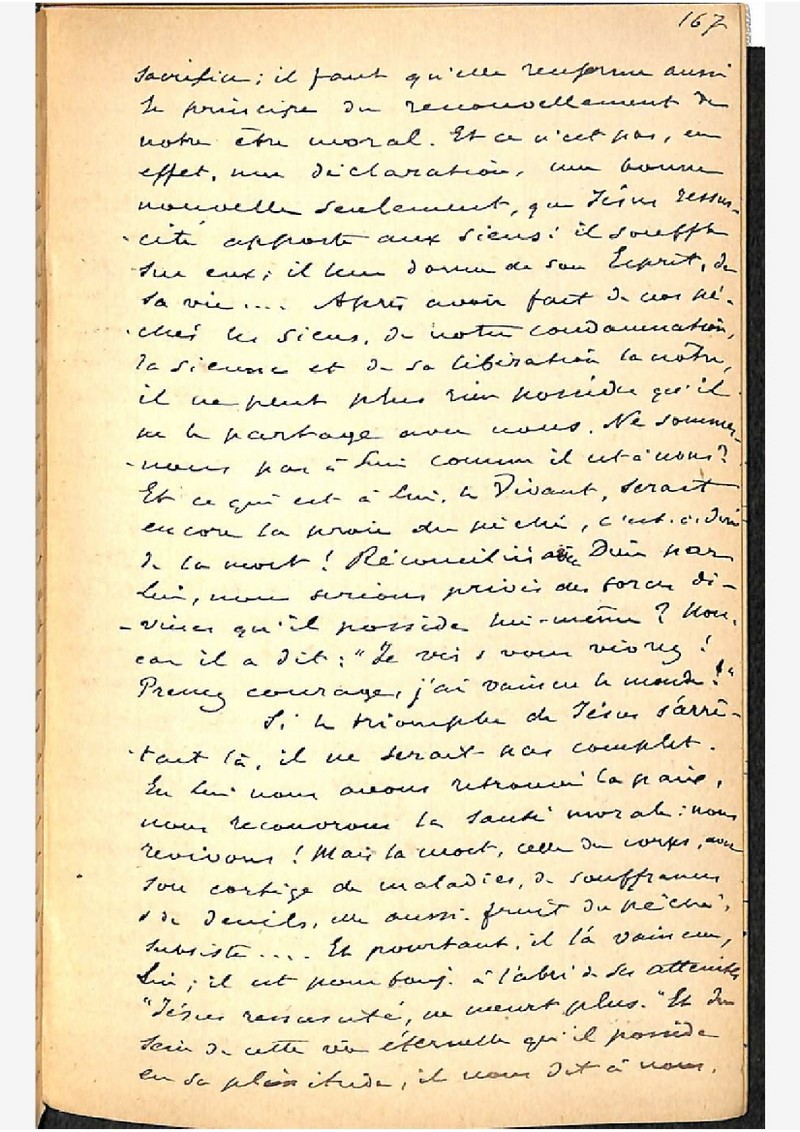 167
sacrifice ; il faut qu'elle renferme aussi
le principe du renouvellement de
notre être moral. Et ce n'est pas, en
effet, une déclaration, une bonne
nouvelle seulement, que Jésus ressus-
-cité apporte aux siens : il souffle
sur eux ; il leur donne de son Esprit, de
sa vie .... Après avoir fait de nos pé-
-chés les siens, de notre condamnation,
la sienne et de sa libération la nôtre,
il ne peut plus rien posséder qu'il
ne le partage avec nous. Ne sommes-
-nous pas à lui comme il est à nous ?
Et ce qui est à lui, le Vivant, serait
encore la proie du péché, c'est-à-dire
de la mort ! Réconciliés avec Dieu par
lui, nous serions privés des forces di-
-vines qu'il possède lui-même ? Non,
car il a dit : "Je vis & vous vivrez !
Prenez courage, j'ai vaincu le monde !"
Si le triomphe de Jésus s'arrê-
-tait là, il ne serait pas complet.
En lui nous avons retrouvé la paix,
nous recouvrons la santé morale : nous
revivons ! Mais la mort, celle du corps, avec
son cortège de maladies, de souffrances
& de deuils, elle aussi fruit du péché,
subsiste .... Et pourtant, il l'a vaincue,
lui ; il est pour touj. à l'abri de ses atteintes
"Jésus ressuscité, ne meurt plus." Et du
sein de cette vie éternelle qu'il possède
en sa plénitude, il nous dit à nous,